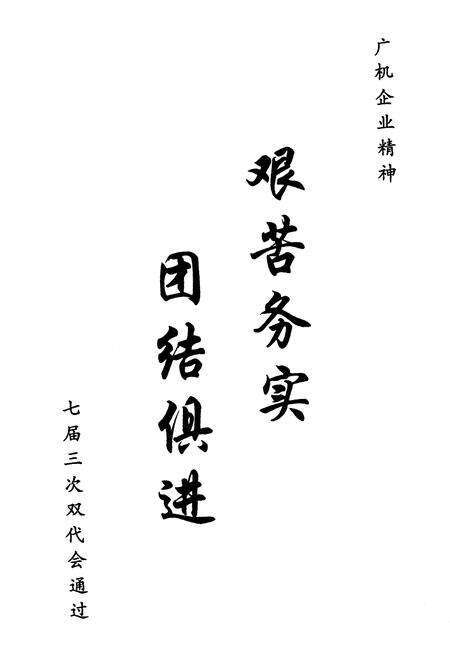 广机企业精神
艰苦务实
团结俱进
七届三次双代会通过